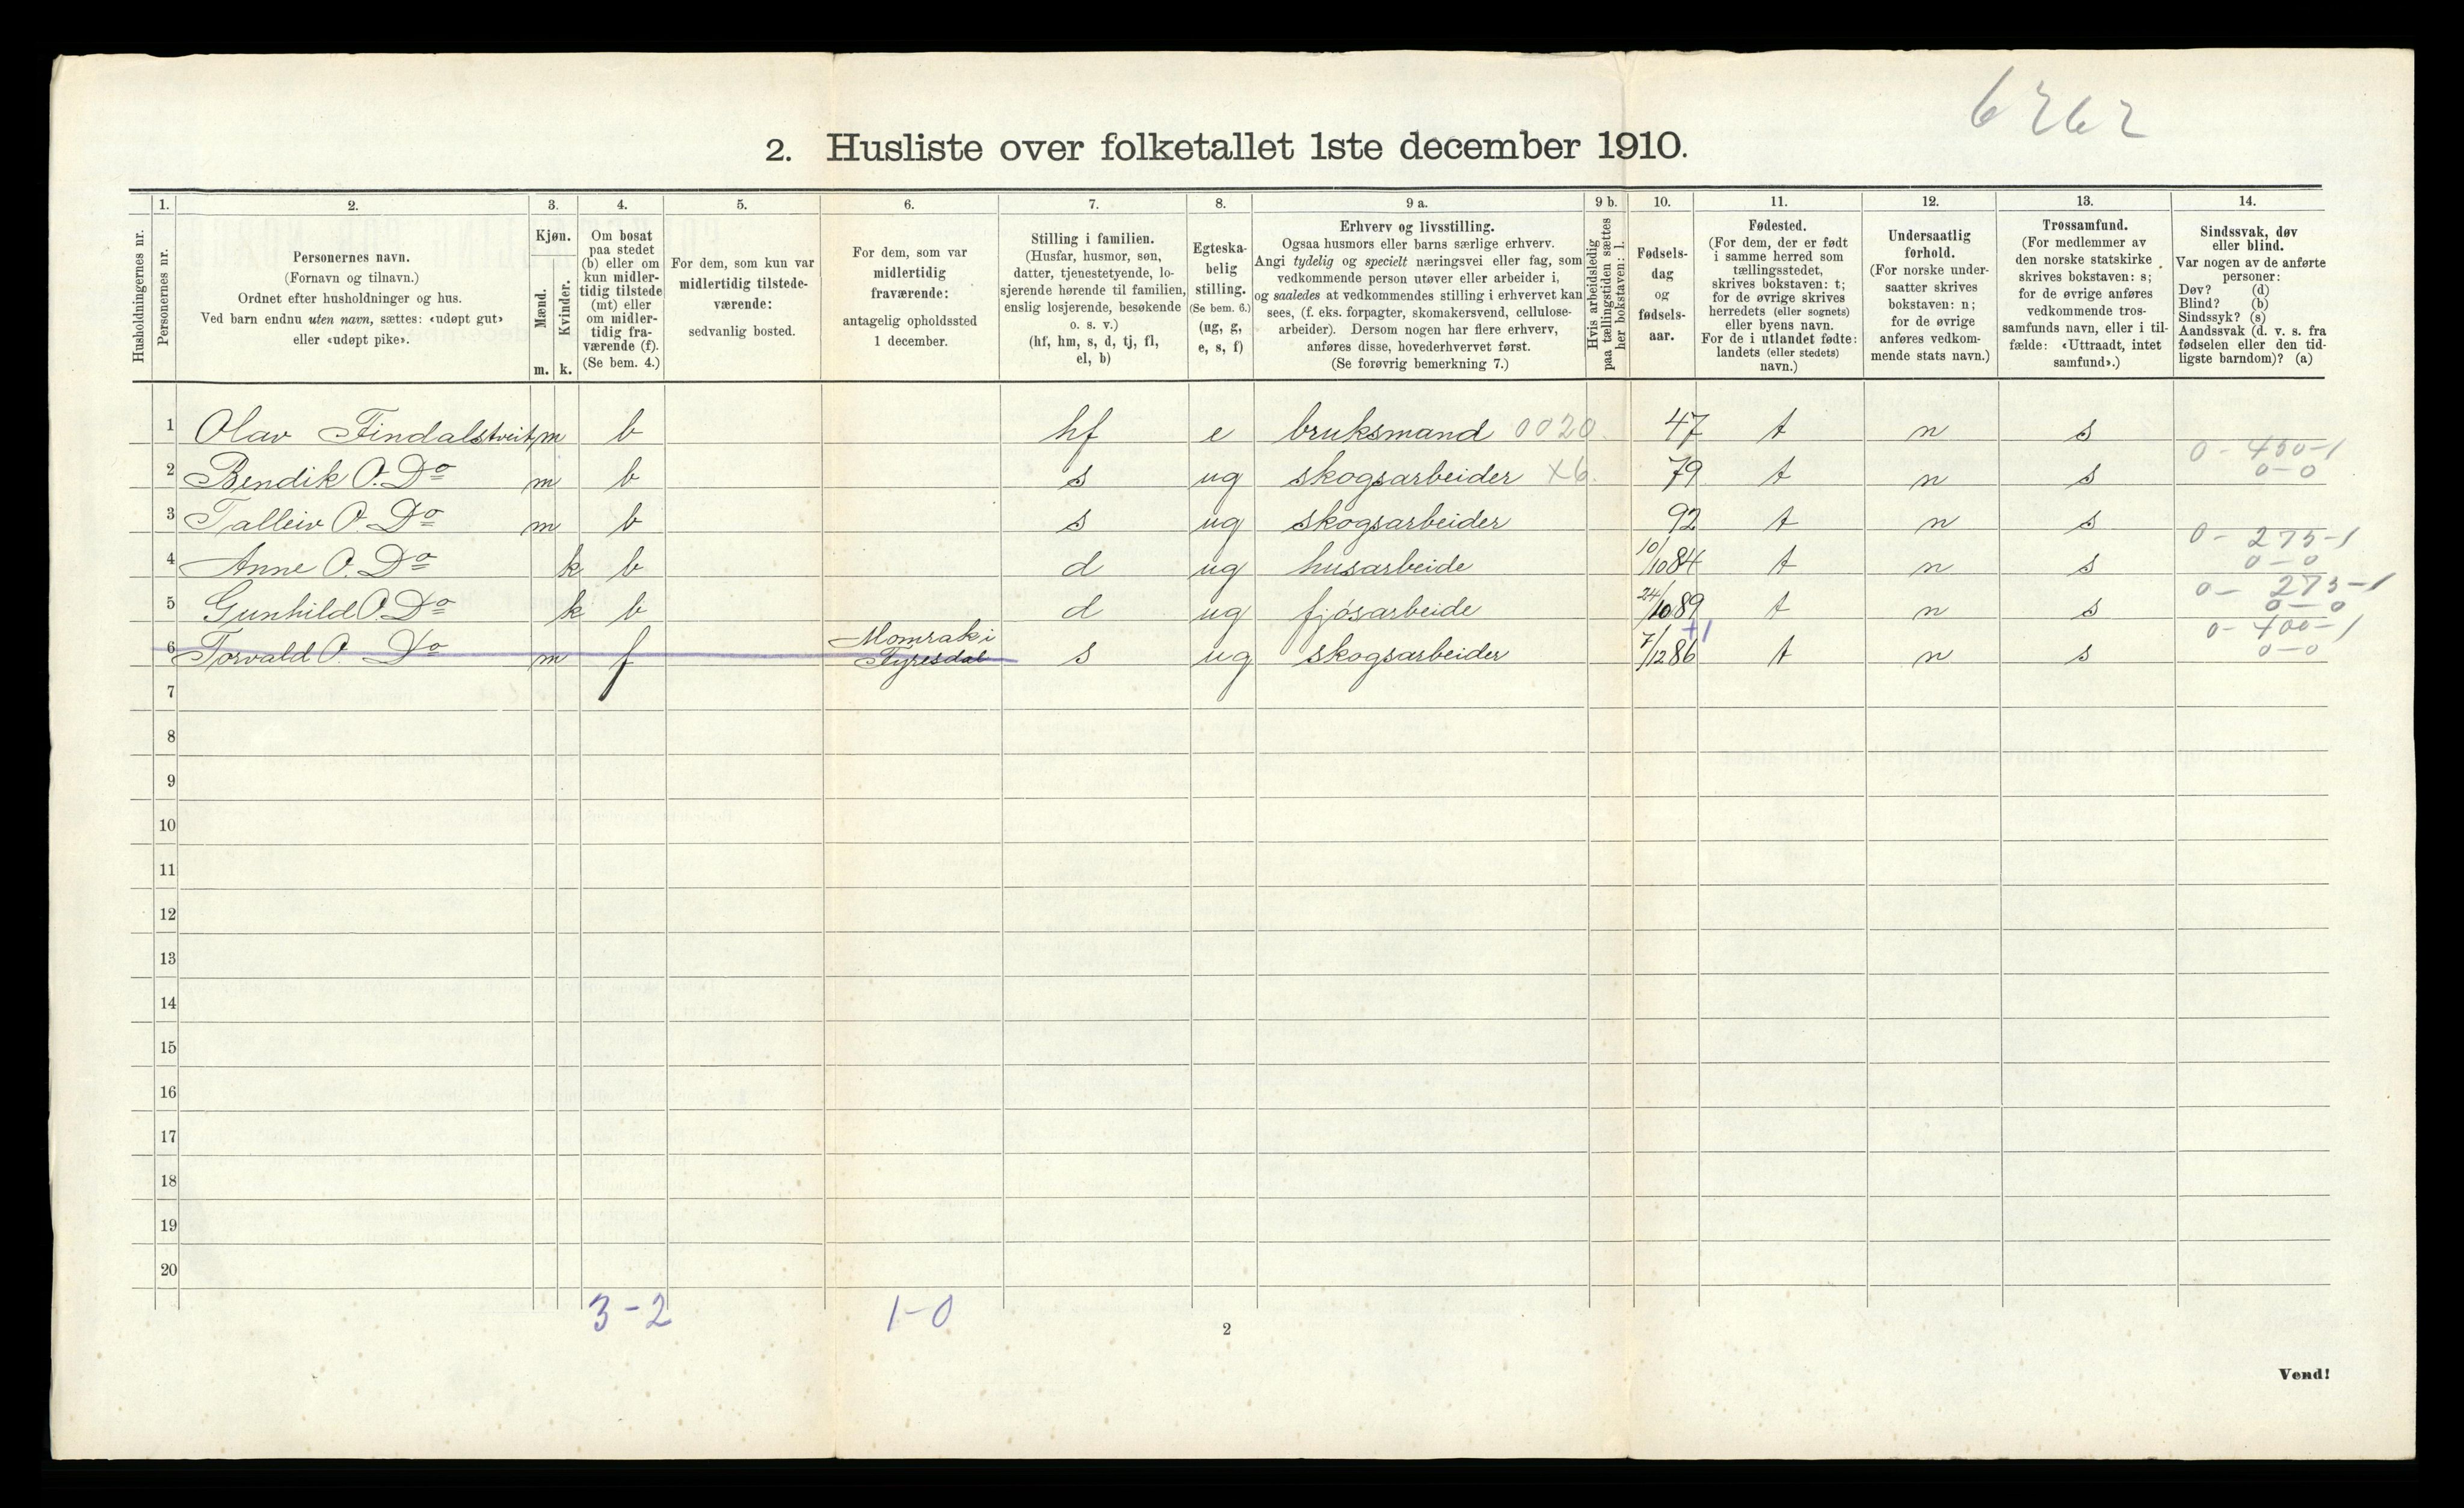 6262
2. Husliste over folketallet 1ste december 1910.
Husholdningernes nr.
1.
Personernes nr.
2.
Personernes navn.
(Fornavn og tilnavn.)
Ordnet efter husholdninger og hus.
Ved barn endnu uten navn, sættes: «udøpt gut»
eller «udøpt pike».
3.
Kjøn.
Mænd.
Kvinder.
m. k.
4.
Om bosat
paa stedet
(b) eller om
kun midler-
tidig tilstede
(mt) eller
om midler-
tidig fra-
værende (f).
(Se bem. 4.)
5.
For dem, som kun var
midlertidig tilstede-
værende:
sedvanlig bosted.
6.
For dem, som var
midlertidig
fraværende:
antagelig opholdssted
1 december.
7.
Stilling i familien.
(Husfar, husmor, søn,
datter, tjenestetyende, lo-
sjerende hørende til familien,
enslig losjerende, besøkende
o. s. v.)
(hf, hm, s, d, tj, fl,
el, b)
8.
Egteska-
belig
stilling.
(Se bem. 6.)
(ug, g,
e, s, f)
9 a.
Erhverv og livsstilling.
Ogsaa husmors eller barns særlige erhverv.
Angi tydelig og specielt næringsvei eller fag, som
vedkommende person utøver eller arbeider i,
og saaledes at vedkommendes stilling i erhvervet kan
sees, (f. eks. forpagter, skomakersvend, cellulose-
arbeider). Dersom nogen har flere erhverv,
anføres disse, hovederhvervet først.
(Se forøvrig bemerkning 7.)
9 b.
Hvis arbeidsledig
paa tællingstiden sættes
her bokstaven: l.
10.
Fødsels-
dag
og
fødsels-
aar.
11.
Fødested.
(For dem, der er født
i samme herred som
tællingsstedet,
skrives bokstaven: t;
for de øvrige skrives
herredets (eller sognets)
eller byens navn.
For de i utlandet fødte:
landets (eller stedets)
navn.)
12.
Undersaatlig
forhold.
(For norske under-
saatter skrives
bokstaven: n;
for de øvrige
anføres vedkom-
mende stats navn.)
13.
Trossamfund.
(For medlemmer av
den norske statskirke
skrives bokstaven: s;
for de øvrige anføres
vedkommende tros-
samfunds navn, eller i til-
fælde: «Uttraadt, intet
samfund».)
14.
Sindssvak, døv
eller blind.
Var nogen av de anførte
personer:
Døv? (d)
Blind? (b)
Sindssyk? (s)
Aandssvak (d. v. s. fra
fødselen eller den tid-
ligste barndom)? (a)
1 Olav Findalstveit m b hf e bruksmand 0020 47 t n s
0 - 450-1
2 Bendik O. Do m b s ug skogsarbeider X6. 79 t n s 0-0
3 Talleiv O. Do m b s ug skogsarbeider 92 t n s
0 - 275-1
4 Anne O. Do k b d ug husarbeide 10/10 84 t n s 0-0
0 - 275-1
5 Gunhild O. Do k b d ug fjøsarbeide 24/10 89 t n s 0-0
+1
0 - 400-1
6 Torvald O. Do m f Momrak i
Fyresdal s ug skogsarbeider 7/12 86 t n s 0-0
7
8
9
10
11
12
13
14
15
16
17
18
19
20
3-2 1-0
2
Vend!